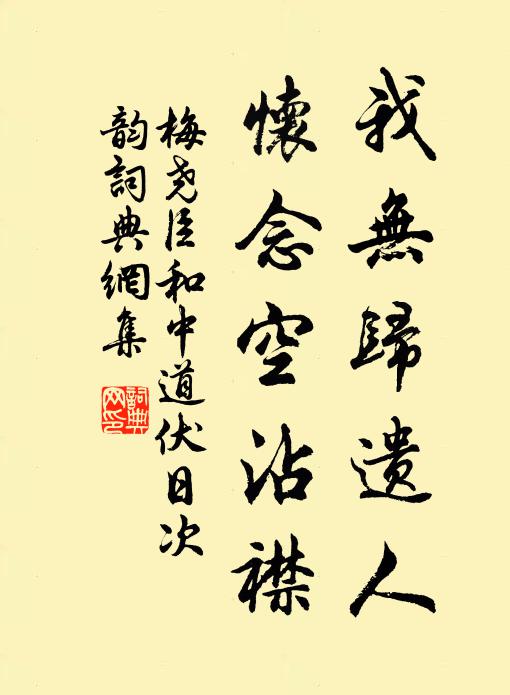 我無歸遺人
懷念空沾襟
梅堯臣和中道伏日次
韵詞典網集
詞典網印